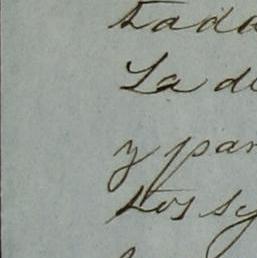 tada
La de
y par
tos sy